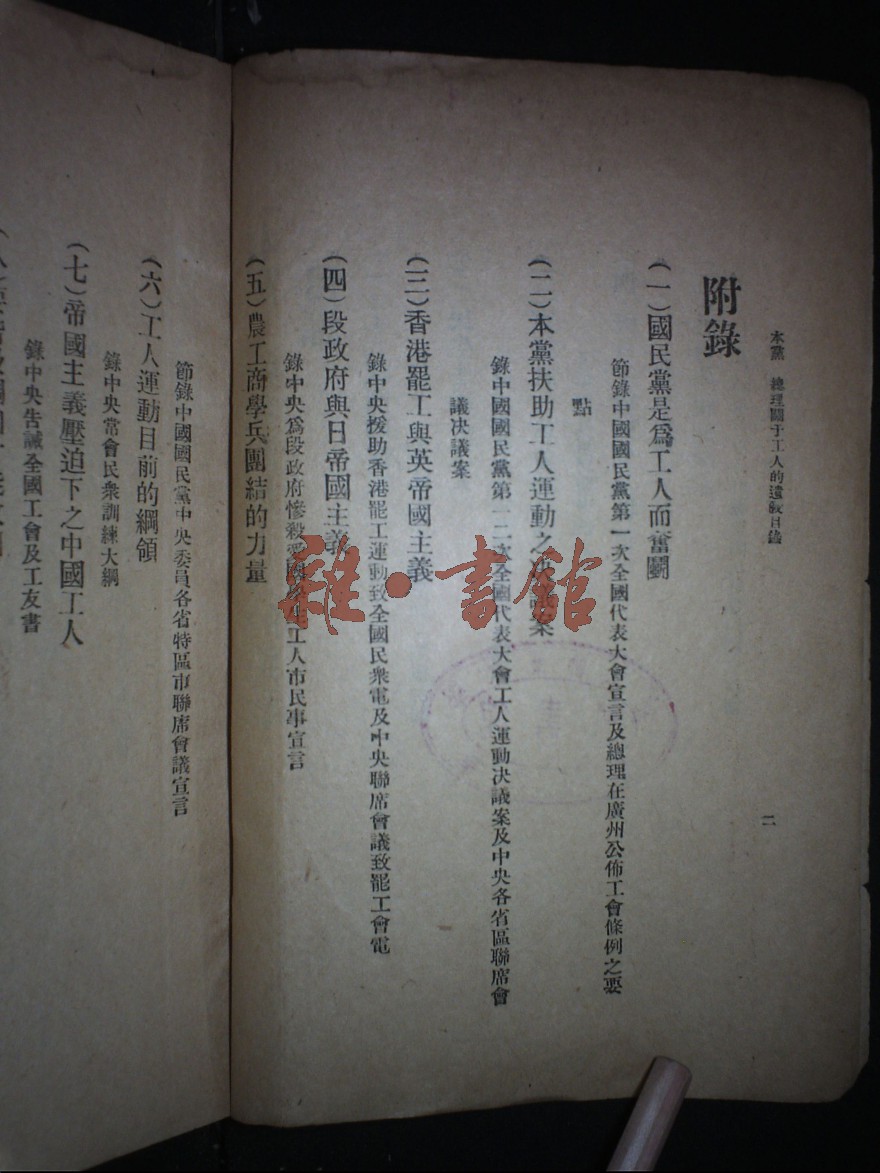 本黨 總理關于工人的遺教目錄
二
附錄
(一)國民黨是爲工人而奮鬭
節錄中國國民黨第一次全國代表大會宣言及總理在廣州公佈工會條例之要
點
(二)本黨扶助工人運動之決議案
錄中國國民黨第一二次全國代表大會工人運動决議案及中央各省區聯席會
議决議案
(三)香港罷工與英帝國主義
錄中央援助香港罷工運動致全國民衆電及中央聯席會議致罷工會電
(四)段政府與日帝國主義
錄中央爲段政府慘殺愛國學生工人市民事宣言
(五)農工商學兵團結的力量
節錄中國國民黨中央委員各省特區市聯席會議宣言
(六)工人運動目前的綱領
錄中央常會民衆訓練大綱
(七)帝國主義壓迫下之中國工人
錄中央告誡全國工會及工友書
雜·書館